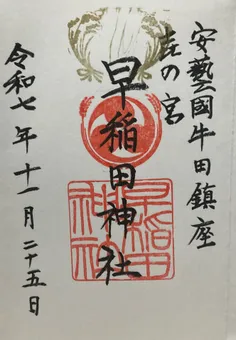 安藝國牛田鎮座
㐂の宮
早稲田神社
早稲田
神社
令和七年十一月二十五日